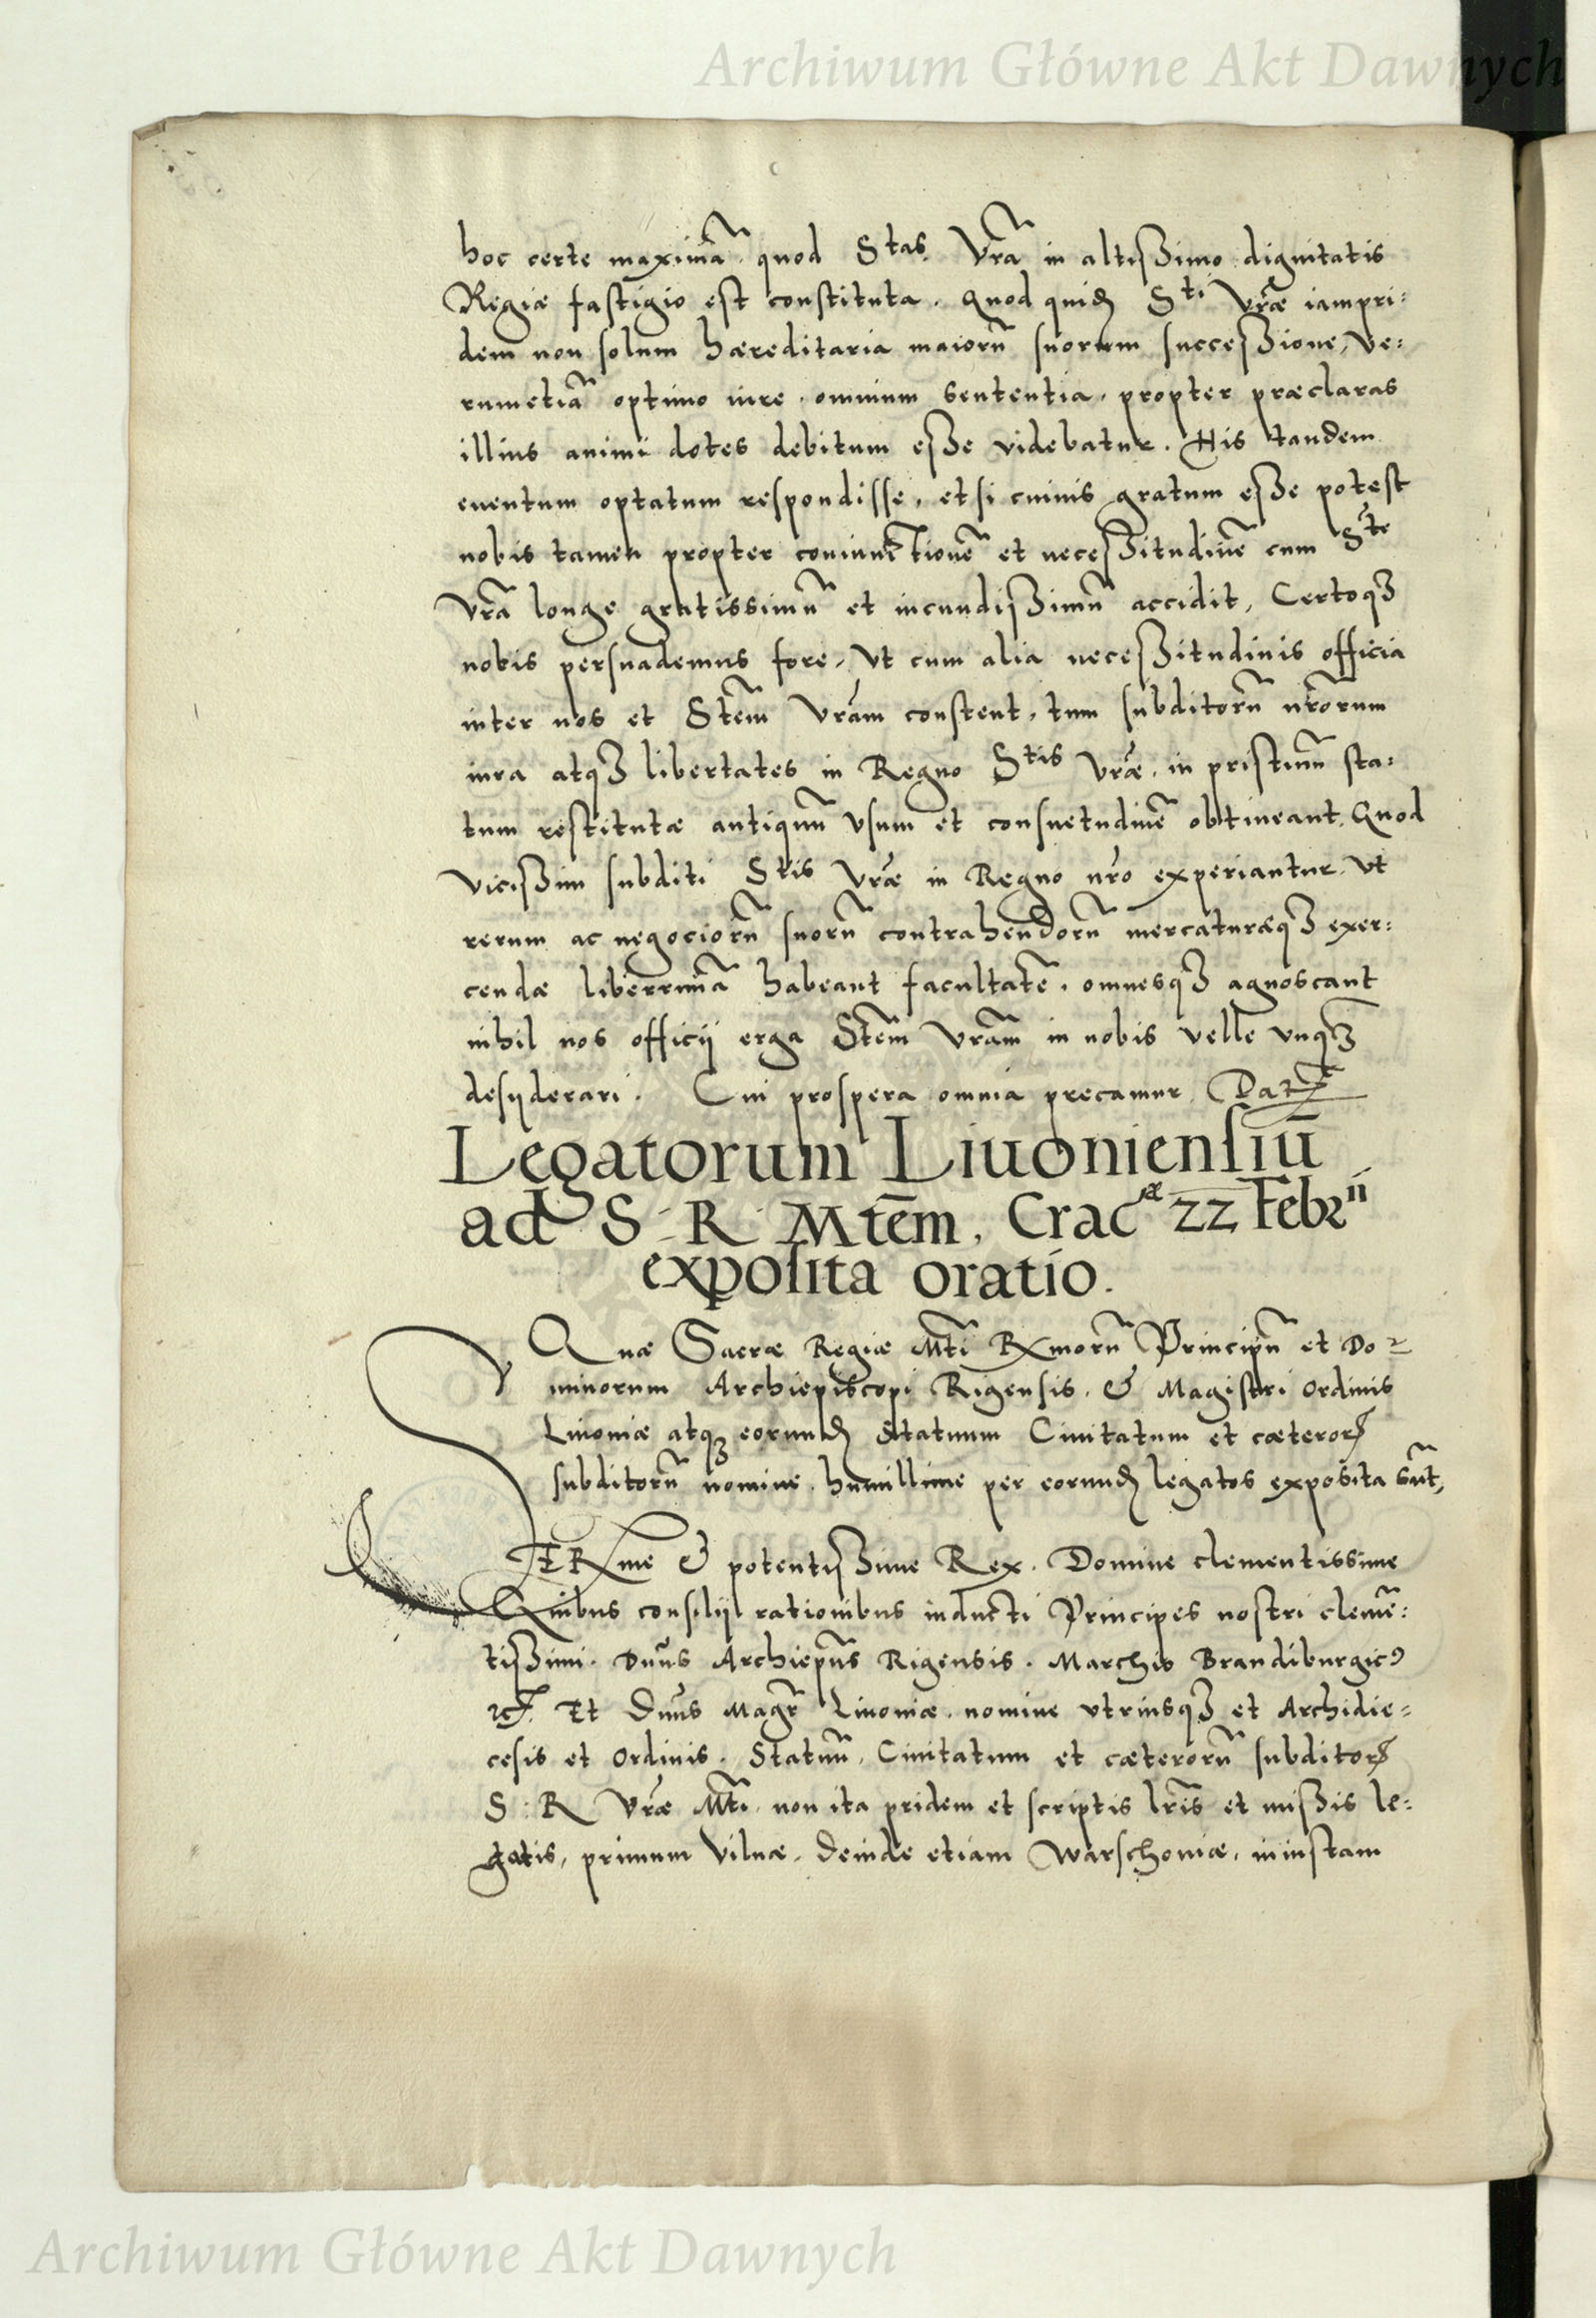 Archiwum Główne Akt Dawnych
hoc certe maximā. quod Stas. Vrā in altißimo dignitatis
Regiæ fastigio est constituta. Quod quidē Sti Vrǣ iampri:
dem non solum hæreditaria maiorū suorum succeßione, Ve:
rumetiā optimo iure. omnium sententia. propter præclaras
illius animi dotes debitum eße videbatur. His tandem
euentum optatum respondisse, etsi cuiuis gratum eße potest
nobis tamen propter coniunctionē et neceßitudinē cum Ste
Vrā longe gratissimū et iucundißimū accidit, Certoqȝ
nobis persuademus fore, Vt cum alia neceßitudinis officia
inter nos et Stēm Vrām constent, tum subditorū nrōrum
iura atqȝ libertates in Regno Stis Vrǣ. in pristinū sta:
tum restitutæ antiquū Vsum et consuetudinē obtineant. Quod
Vicißim subditi Stis Vrǣ in Regno nrō experiantur. Vt
rerum ac negociorū suorū contrahendorū mercaturæqȝ exer:
cendæ liberrimā habeant facultatē. omnesqȝ agnoscant
nihil nos officij erga Stēm Vrām in nobis velle vnqȝ
desyderari. Cui prospera omnia precamur. Datꝭ
Legatorum Liuoniensiū
ad S. R. Mtēm, Cracæ 22 Febrii
exposita oratio.
Quæ Sacræ Regiæ Mti Rxmorū Principū et Do:
minorum Archiepiscopi Rigensis. & Magistri Ordinis
Liuoniæ atqȝ eorundē Statuum Ciuitatum et cæterorꝝ
subditorū nomine. humillime per eorundē legatos exposita sūt,
SERxme & potentißime Rex. Domine clementissime
Quibus consilijs rationibus inducti Principes nostri clemē:
tißimi. Dnūs Archiepūs Rigensis. Marchio Brandiburgicꝰ
ꝛcꝭ. Et Dnūs Magr̄ Liuoniæ. nomine vtriusqȝ et Archidie:
cesis et Ordinis. Statuū, Ciuitatum et cæterorū subditorꝝ
S. R. Vrǣ Mti. non ita pridem et scriptis lrīs et mißis le:
gatis, primum Vilnæ. deinde etiam Warschouiæ, in iustam
Archiwum Główne Akt Dawnych